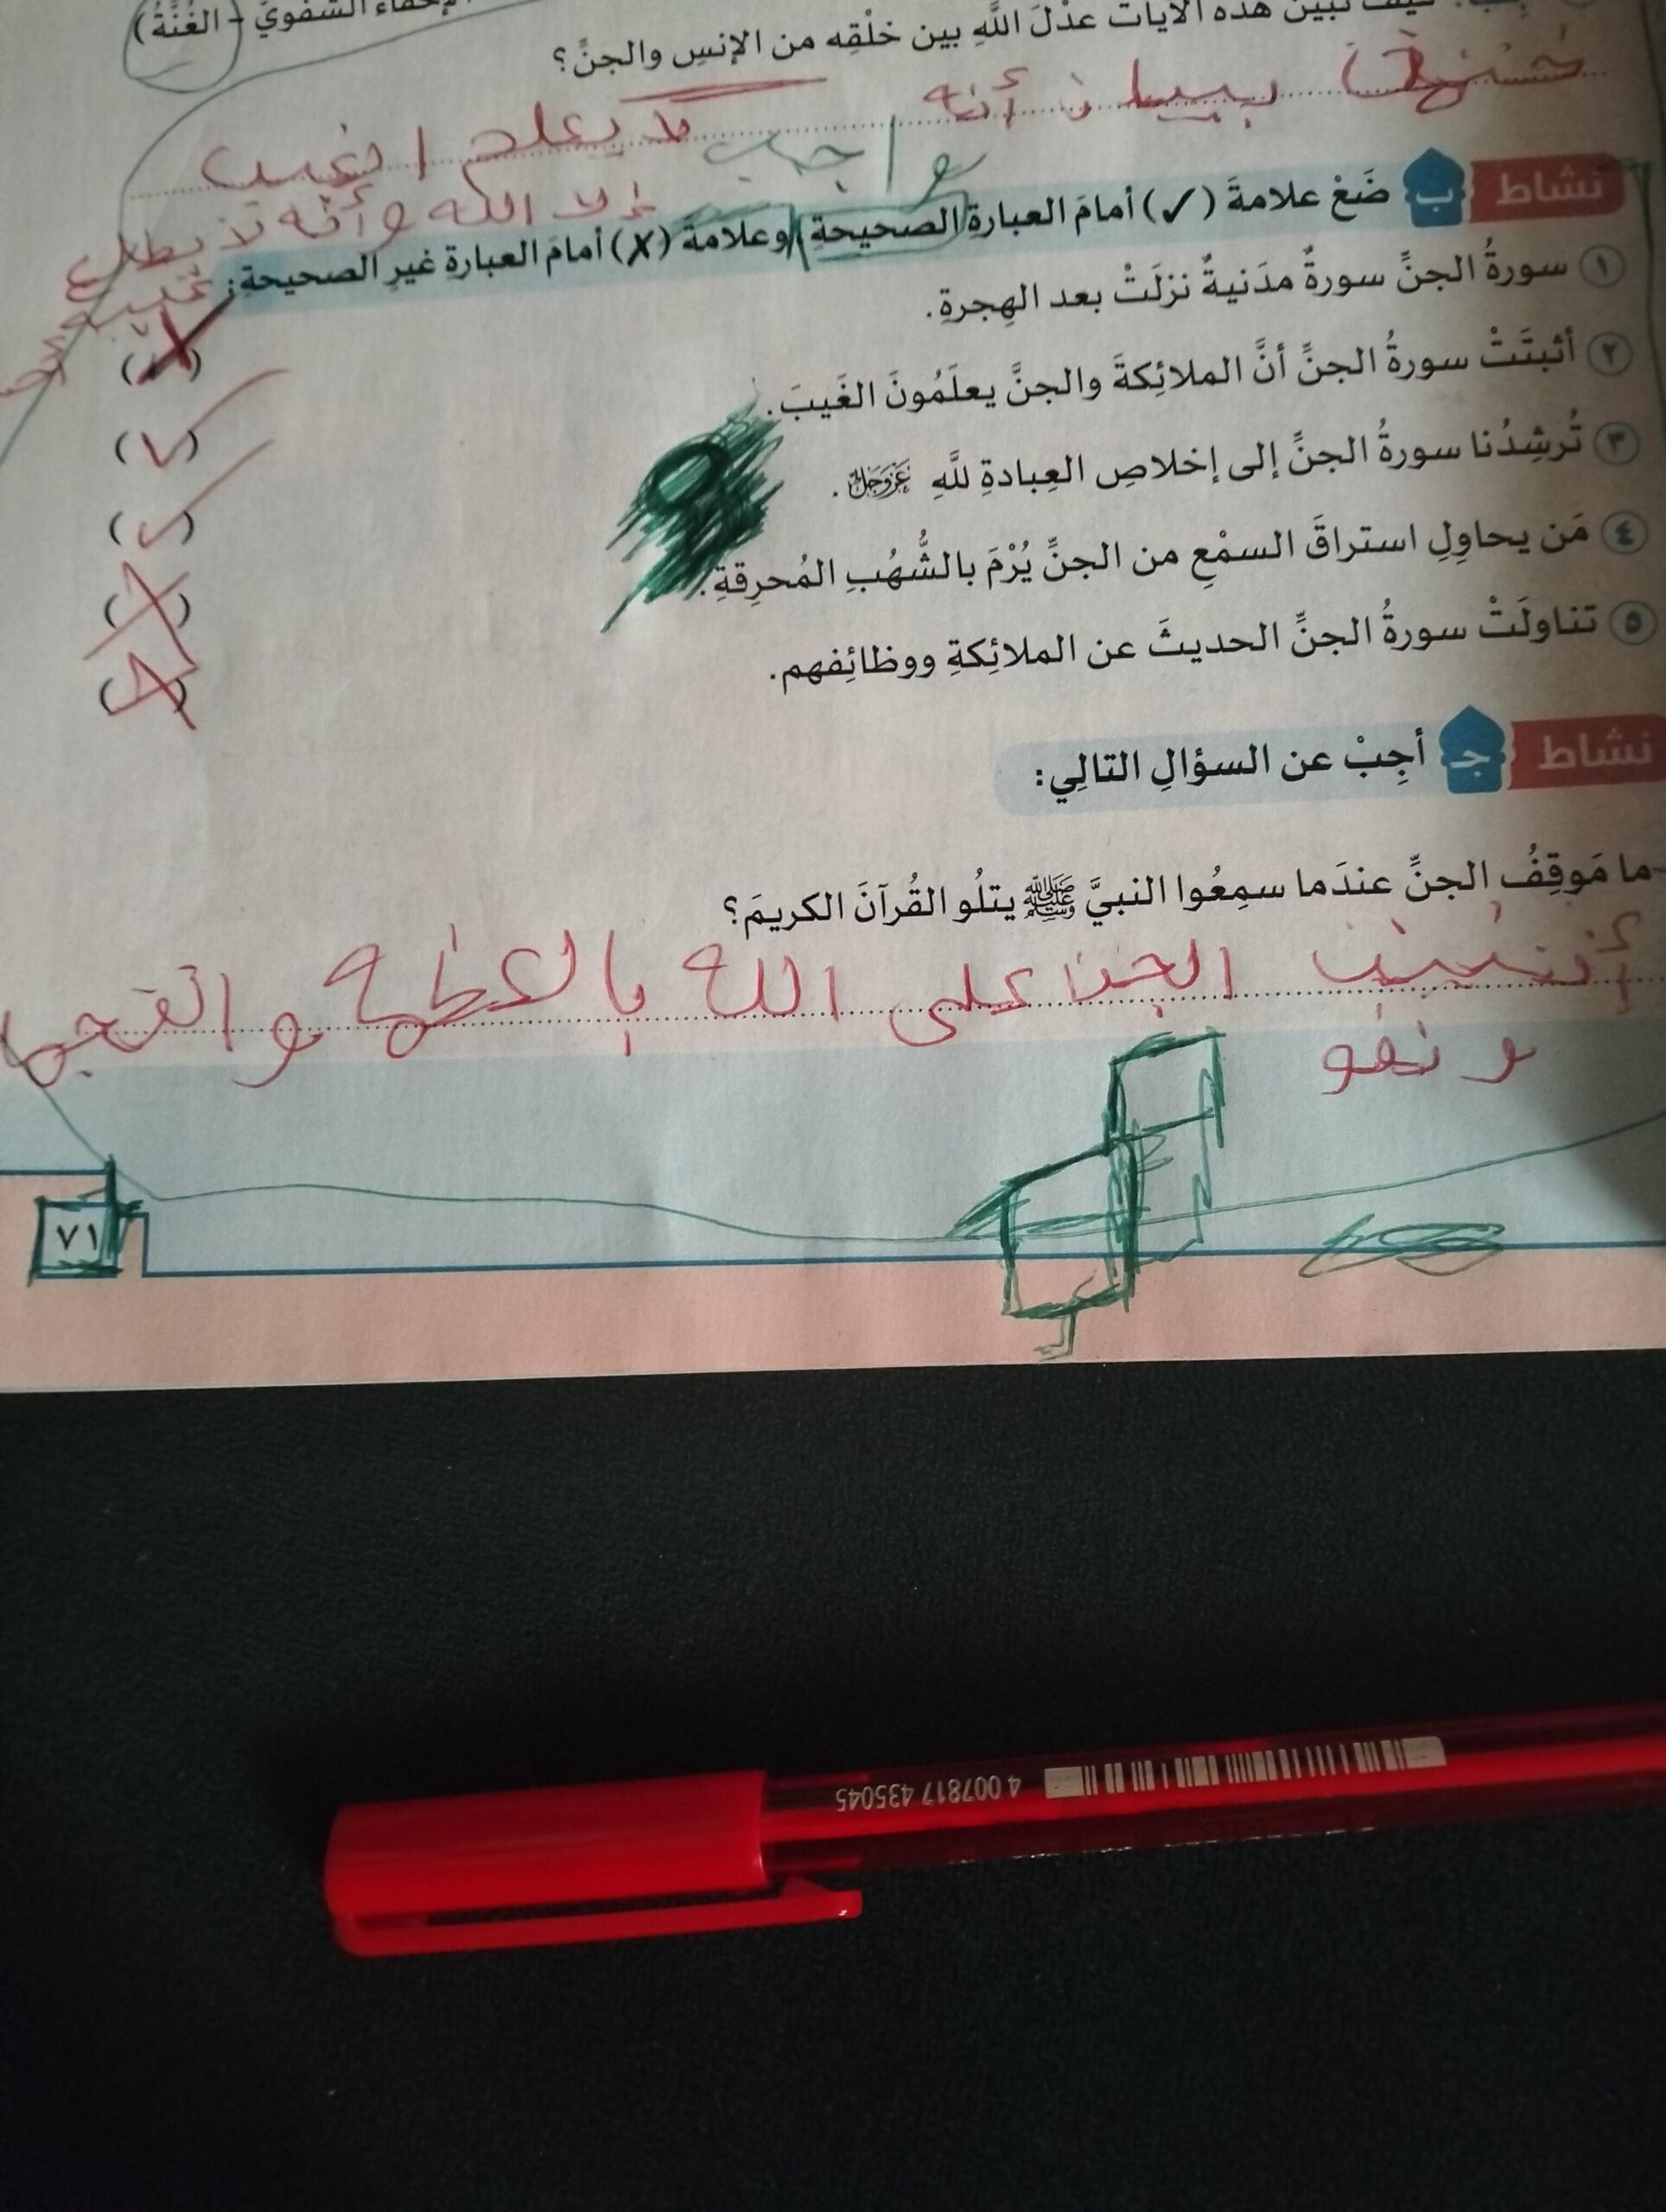 الإخفاء الشفوي - الغُنَّةُ)
تُبين هذه الآيات عدْلَ اللَّهِ بين خلْقِه من الإنسِ والجنِّ؟
ببيان أنه لا يعلم الغيب
إلا الله وأنه لا يطلع
واجب
نشاط ب ضَعْ علامةَ (✓) أمامَ العبارةِ الصحيحةِ، وعلامةَ (✗) أمامَ العبارةِ غيرِ الصحيحةِ:
١ سورةُ الجنِّ سورةٌ مدَنيةٌ نزلَتْ بعد الهِجرةِ. (✗)
٢ أثبتَتْ سورةُ الجنِّ أنَّ الملائِكةَ والجنَّ يعلَمُونَ الغَيبَ. (✓)
٣ تُرشِدُنا سورةُ الجنِّ إلى إخلاصِ العِبادةِ للَّهِ عَزَّوَجَلَّ. (✓)
٤ مَن يحاوِلِ استراقَ السمْعِ من الجنِّ يُرْمَ بالشُّهُبِ المُحرِقةِ. (✗)
٥ تناولَتْ سورةُ الجنِّ الحديثَ عن الملائِكةِ ووظائِفهم. (✗)
نشاط جـ أجِبْ عن السؤالِ التالِي:
-ما مَوقِفُ الجنِّ عندَما سمِعُوا النبيَّ ﷺ يتلُو القُرآنَ الكريمَ؟
الجن على الله بالعظمه و
و نفو
٧١
4 007817 435045